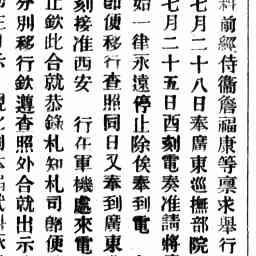 科前經侍衞詹福康等禀求舉行
七月二十八日奉廣東巡撫部院
七月二十五日酉刻電奏准請將
始一律永遠停止除俟奉到電
即便移行查照同日又奉到廣東
刻接准西安 行在軍機處來電
止欽此合就恭錄札知札司即便
分別移行欽遵查照外合就出示